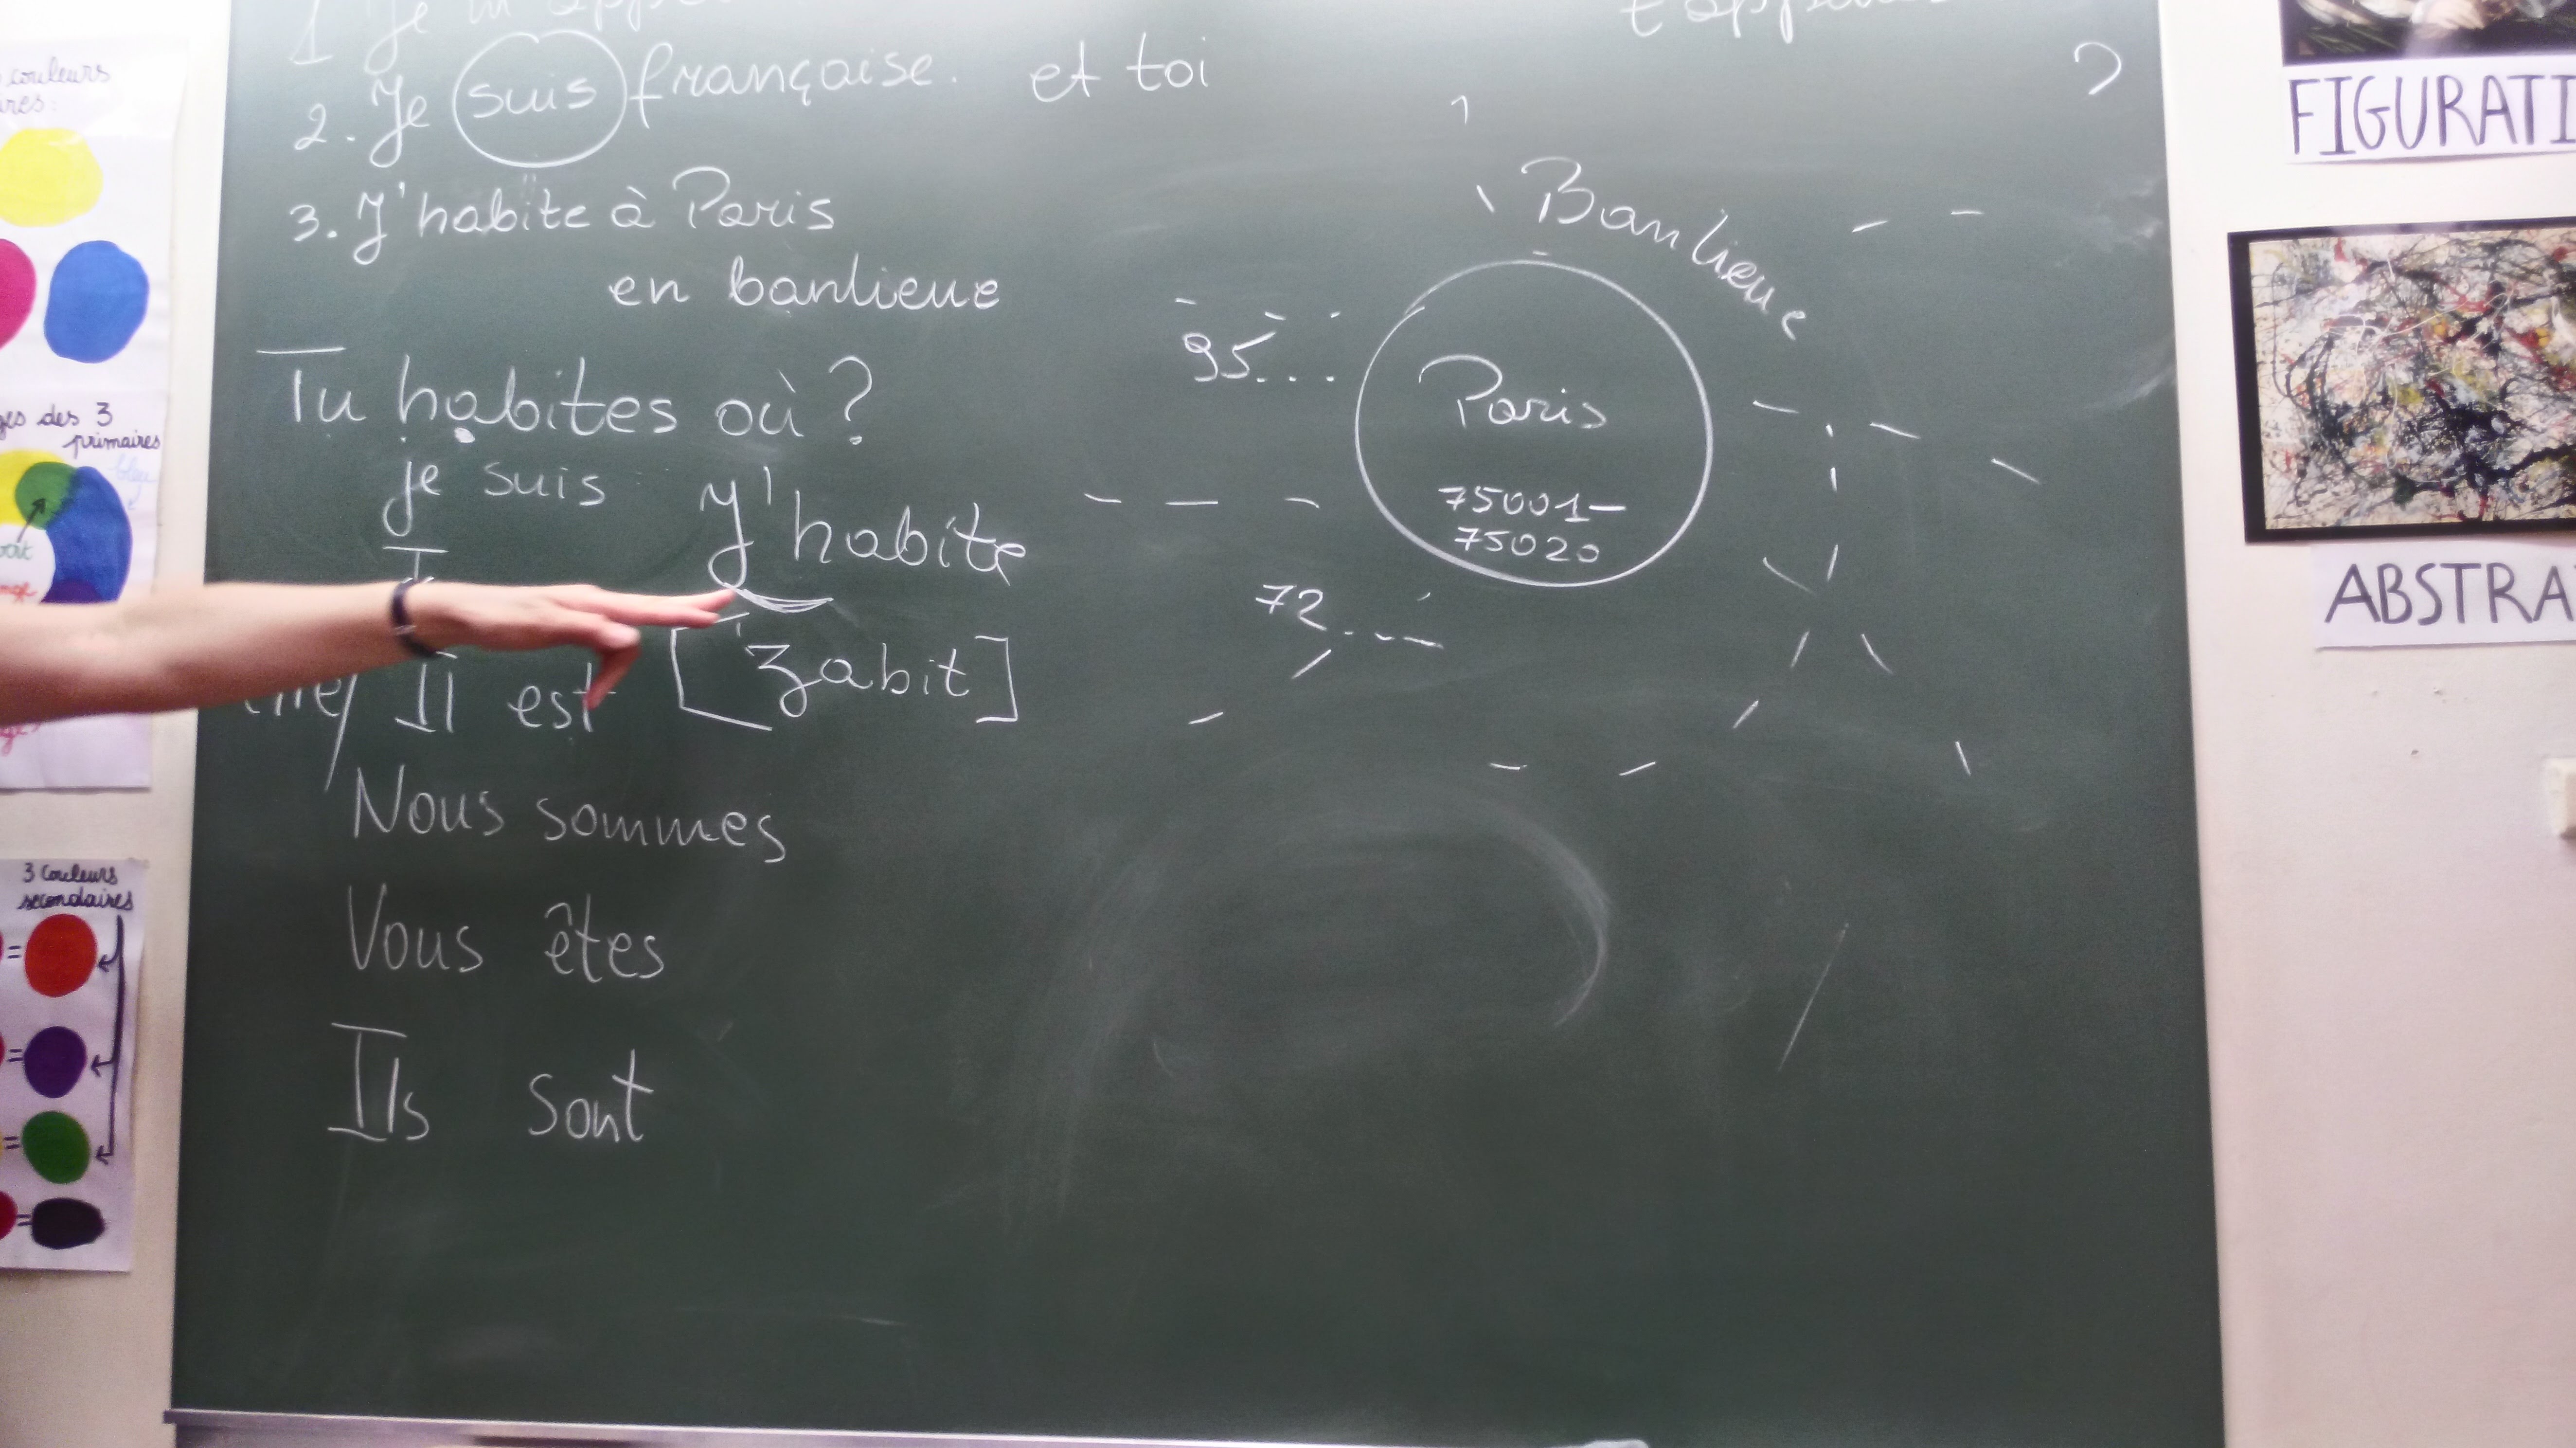 couleurs
3
primaires
bleu
3 couleurs
secondaires
1 Je m'app
2. Je suis française. et toi
?
3. J'habite à Paris
en banlieue
Tu habites où ?
je suis
J'habite
[ʒabit]
Il est
Nous sommes
Vous êtes
Ils sont
Banlieue
95...
Paris
75001-
75020
72....
FIGURATI
ABSTRA